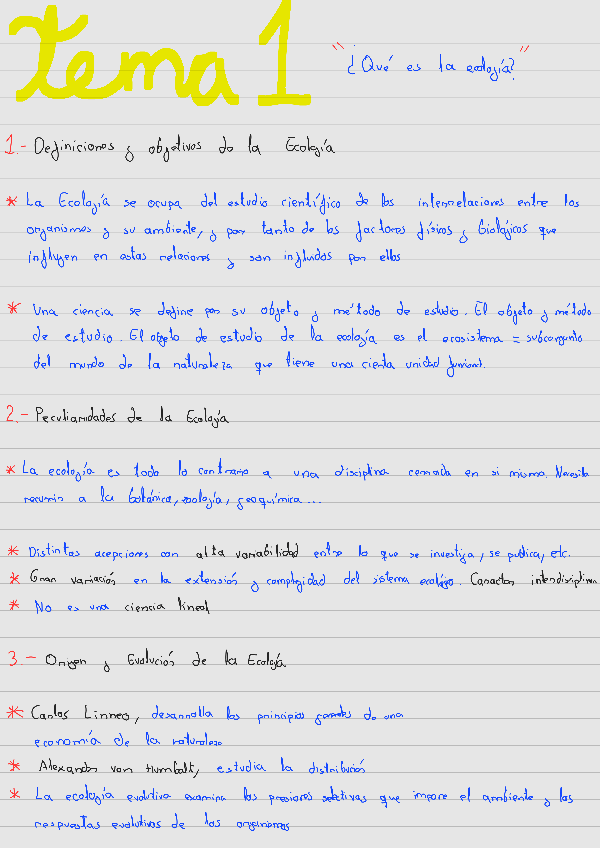 tema 1
"¿Qué es la ecología?"
1.- Definiciones y objetivos de la Ecología
* La Ecología se ocupa del estudio científico de las interrelaciones entre los
organismos y su ambiente, y por tanto de los factores físicos y biológicos que
influyen en estas relaciones y son influidos por ellas
* Una ciencia se define por su objeto y método de estudio. El objeto y método
de estudio. El objeto de estudio de la ecología es el ecosistema = subconjunto
del mundo de la naturaleza que tiene una cierta unidad funcional.
2.- Peculiaridades de la Ecología
* La ecología es todo lo contrario a una disciplina cerrada en si misma. Necesita
recurrir a la botánica, zoología, geoquímica...
* Distintas acepciones con alta variabilidad entre lo que se investiga, se publica, etc.
* Gran variación en la extensión y complejidad del sistema ecológico. Caracter interdisciplinar
* No es una ciencia lineal
3.- Origen y Evolución de la Ecología
* Carlos Linneo, desarrolla los principios generales de una
economía de la naturaleza
* Alexander von Humbolt, estudia la distribución
* La ecología evolutiva examina las presiones selectivas que impone el ambiente y las
respuestas evolutivas de los organismos